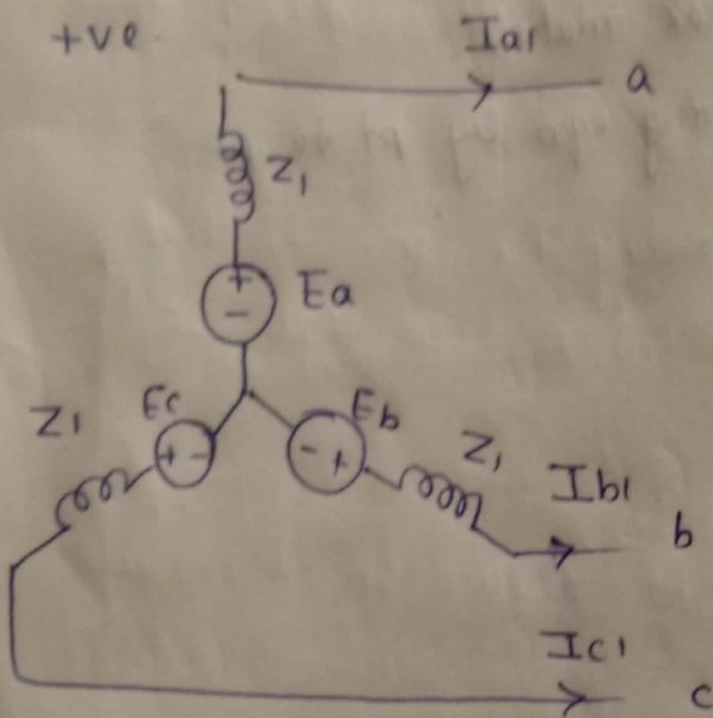 +ve
Ia1
a
Z1
+
Ea
-
Z1
Ec
Eb
+ -
- +
Z1
Ib1
b
Ic1
c